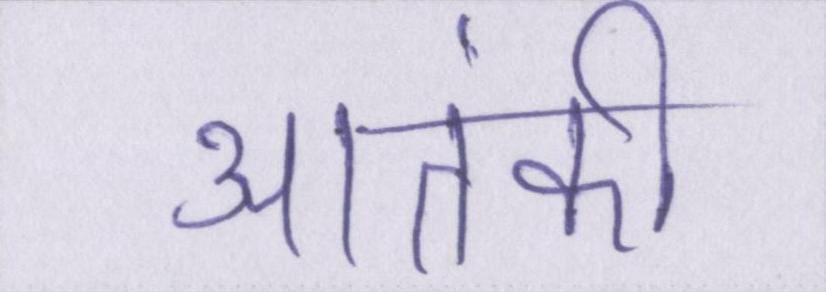 आतंकी